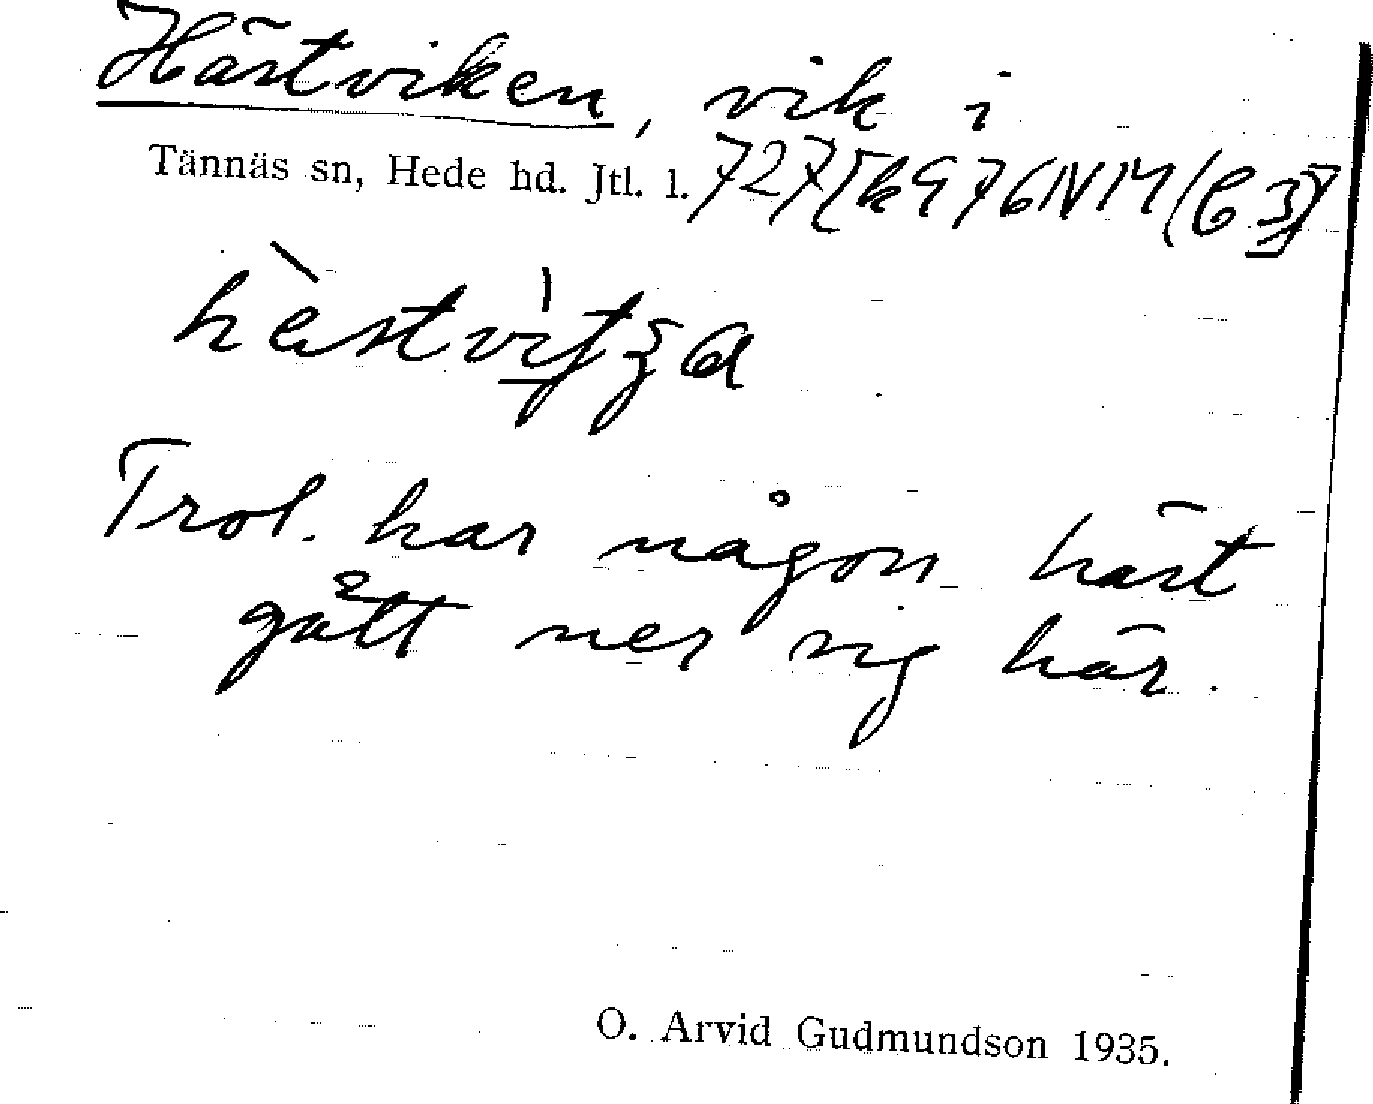 Hästviken, vik i
Tännäs sn, Hede hd. Jtl. l. 727
hèstvitʒa
Trol. har någon häst
gått ner sig här.
O. Arvid Gudmundson 1935.